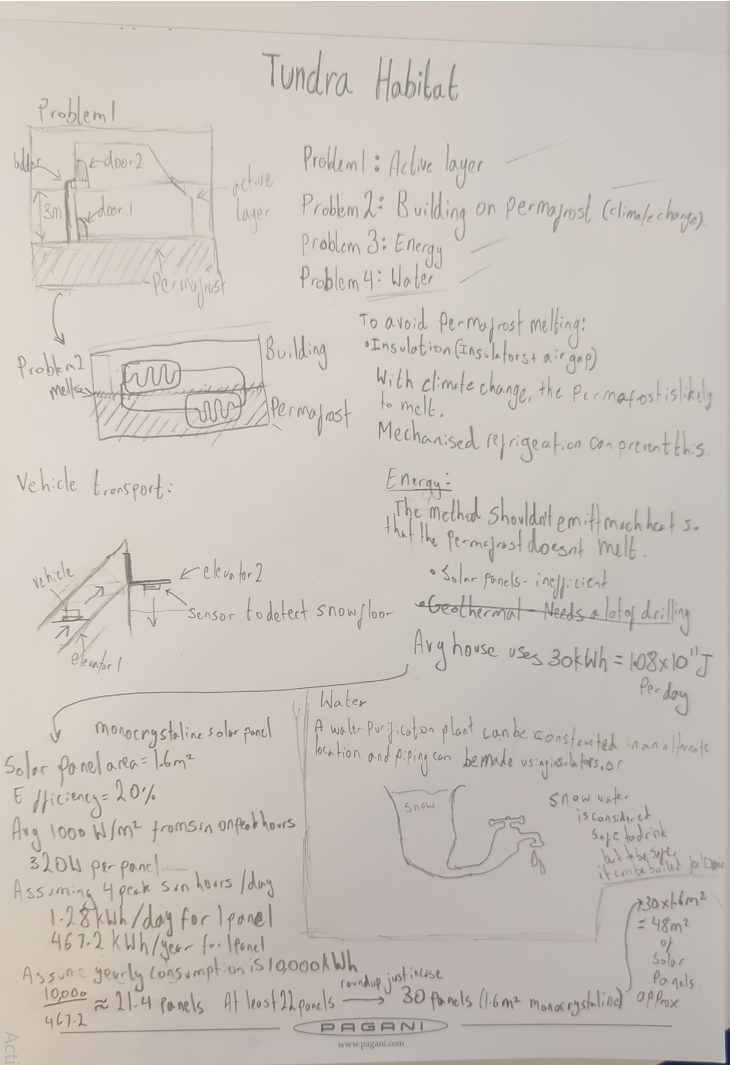 Tundra Habitat
Problem 1
ladder
door 2
3m
door 1
active
layer
Permafrost
Problem 1: Active layer
Problem 2: Building on permafrost (climate change)
Problem 3: Energy
Problem 4: Water
Problem 2
melts
Building
Permafrost
To avoid permafrost melting:
•Insulation (Insulators + air gap)
With climate change, the permafrost is likely
to melt.
Mechanised refrigeation can prevent this.
Vehicle transport:
vehicle
elevator 2
Sensor to detect snow floor
elevator 1
Energy:
The method shouldn't emit much heat so
that the permafrost doesnt melt.
•Solar panels - inefficient
•Geothermal - Needs a lot of drilling
Avg house uses 30kWh = 1.08x10¹¹J
Per day
monocrystaline solar panel
Solar panel area = 1.6m²
Efficiency = 20%
Avg 1000 W/m² from sun on peak hours
320W per panel
Assuming 4 peak sun hours /day
1.28kWh/day for 1 panel
467.2 kWh/year for 1 panel
Assume yearly consumption is 10,000kWh
10,000
467.2
≈ 21.4 panels At least 22 panels
roundup just incase
30 panels (1.6m² monocrystaline)
30x1.6m²
= 48m²
of
Solar
Panels.
approx
Water
A water purification plant can be constructed in an alternate
location and piping can be made using insulators, or
Snow
Snow water
is considered
safe to drink
but to be safer
it can be boiled for
PAGANI
www.pagani.com
Acti